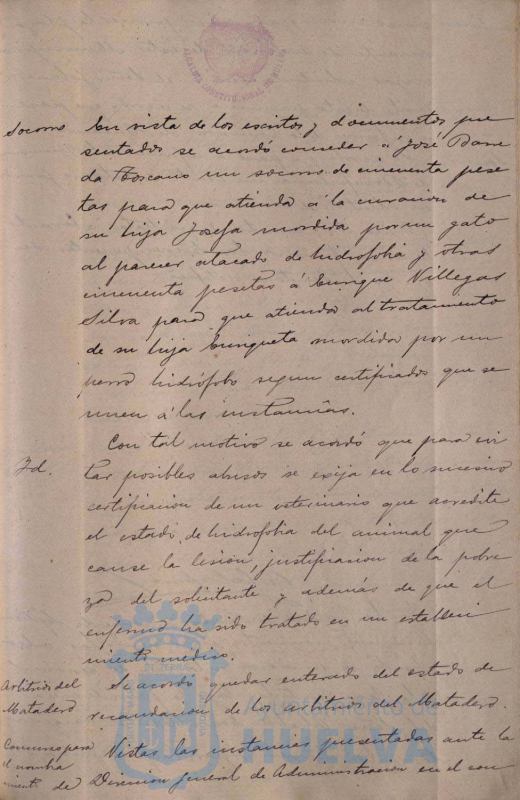 ALCALDIA CONSTITUCIONAL DE HUELVA
Socorro En vista de los escritos y documentos pre
sentados se acordó conceder á José Barre
da Toscano un socorro de cincuenta pese
tas para que atienda á la curacion de
su hija Josefa mordida por un gato
al parecer atacado de hidrofobia y otras
cincuenta pesetas á Enrique Villegas
Silva para que atienda al tratamiento
de su hija Enriqueta mordida por un
perro hidrófobo segun certificados que se
unen á las instancias.
Con tal motivo se acordó que para evi
Id. tar posibles abusos se exija en lo sucesivo
certificacion de un veterinario que acredite
el estado de hidrofobia del animal que
cause la lesion, justificacion de la pobre
za del solicitante y además de que el
enfermo ha sido tratado en un estableci
miento médico.
Arbitrios del Se acordó quedar enterado del estado de
Matadero recaudacion de los arbitrios del Matadero.
Concurso para Vistas las instancias presentadas ante la
el nombra
miento de Direccion general de Administracion en el con
Ayuntamiento de
HUELVA